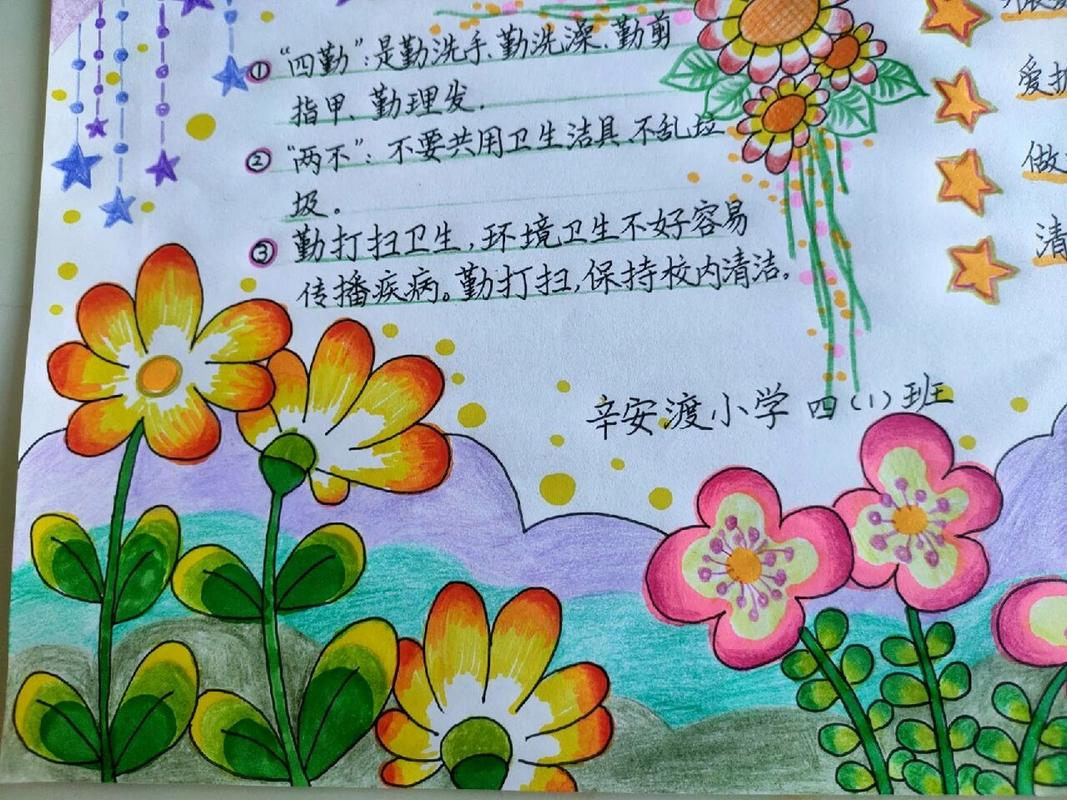 ① “四勤”：是勤洗手、勤洗澡、勤剪
指甲、勤理发.
② “两不”：不要共用卫生洁具、不乱垃
圾。
③ 勤打扫卫生，环境卫生不好容易
传播疾病。勤打扫，保持校内清洁。
辛安渡小学 四（1）班
爱护
做
清